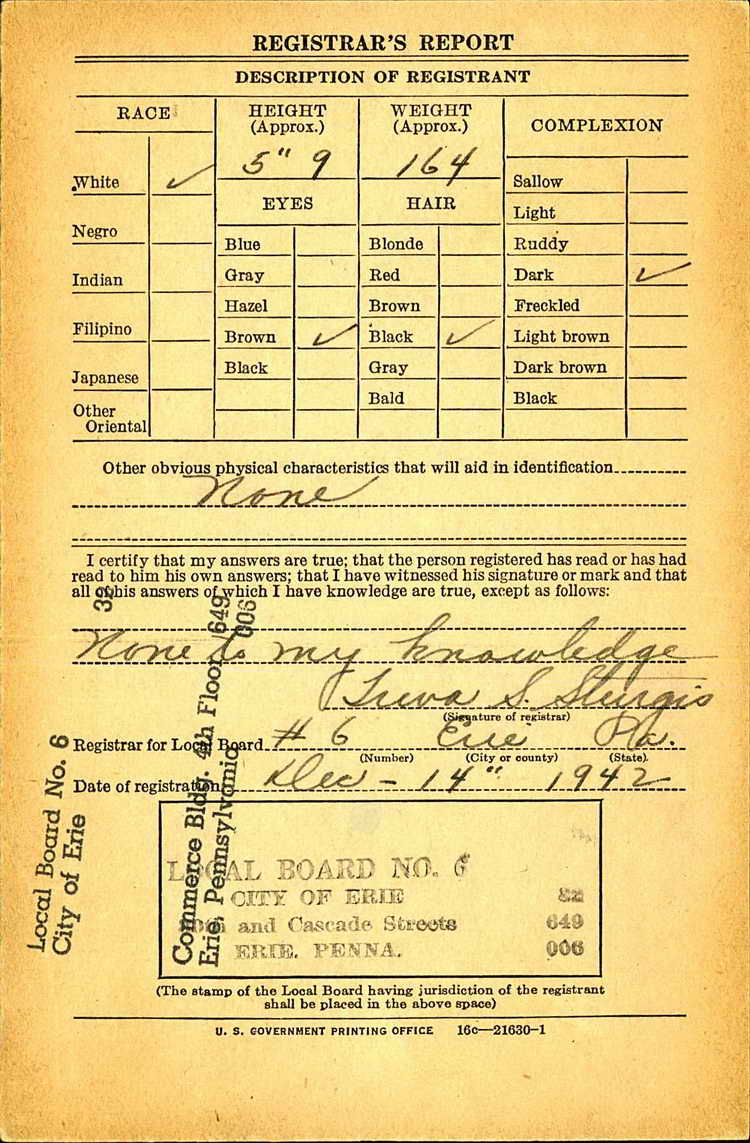 REGISTRAR'S REPORT
DESCRIPTION OF REGISTRANT
RACE
HEIGHT
(Approx.)
WEIGHT
(Approx.)
COMPLEXION
5" 9
164
White ✓
Negro
Indian
Filipino
Japanese
Other
Oriental
EYES
Blue
Gray
Hazel
Brown ✓
Black
HAIR
Blonde
Red
Brown
Black ✓
Gray
Bald
Sallow
Light
Ruddy
Dark ✓
Freckled
Light brown
Dark brown
Black
Other obvious physical characteristics that will aid in identification
None
I certify that my answers are true; that the person registered has read or has had
read to him his own answers; that I have witnessed his signature or mark and that
all of his answers of which I have knowledge are true, except as follows:
None to my knowledge
Treva S. Sturgis
(Signature of registrar)
Registrar for Local Board # 6 Erie Pa.
(Number) (City or county) (State)
Date of registration Dec - 14" 1942
Local Board No. 6 32
City of Erie
Commerce Bldg. 4th Floor 649
Erie, Pennsylvania 006
LOCAL BOARD NO. 6
CITY OF ERIE 32
and Cascade Streets 649
ERIE, PENNA. 006
(The stamp of the Local Board having jurisdiction of the registrant
shall be placed in the above space)
U. S. GOVERNMENT PRINTING OFFICE 16c—21630-1